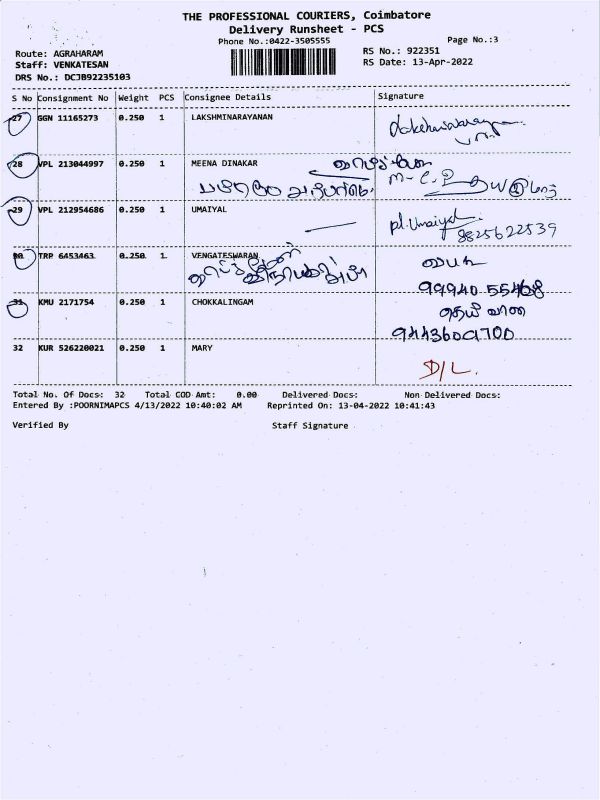 THE PROFESSIONAL COURIERS, Coimbatore
Delivery Runsheet - PCS
Phone No.:0422-3505555
Page No.:3
Route: AGRAHARAM
RS No.: 922351
Staff: VENKATESAN
RS Date: 13-Apr-2022
DRS No.: DCJB92235103
S No Consignment No Weight PCS Consignee Details Signature
27 GGN 11165273 0.250 1 LAKSHMINARAYANAN
28 VPL 213044997 0.250 1 MEENA DINAKAR
29 VPL 212954686 0.250 1 UMAIYAL pl. Umaiyal
8825622539
30 TRP 6453463 0.250 1 VENGATESWARAN
99940 55468
31 KMU 2171754 0.250 1 CHOKKALINGAM
9443609700
32 KUR 526220021 0.250 1 MARY D/L.
Total No. Of Docs: 32 Total COD Amt: 0.00 Delivered Docs: Non Delivered Docs:
Entered By :POORNIMAPCS 4/13/2022 10:40:02 AM Reprinted On: 13-04-2022 10:41:43
Verified By Staff Signature